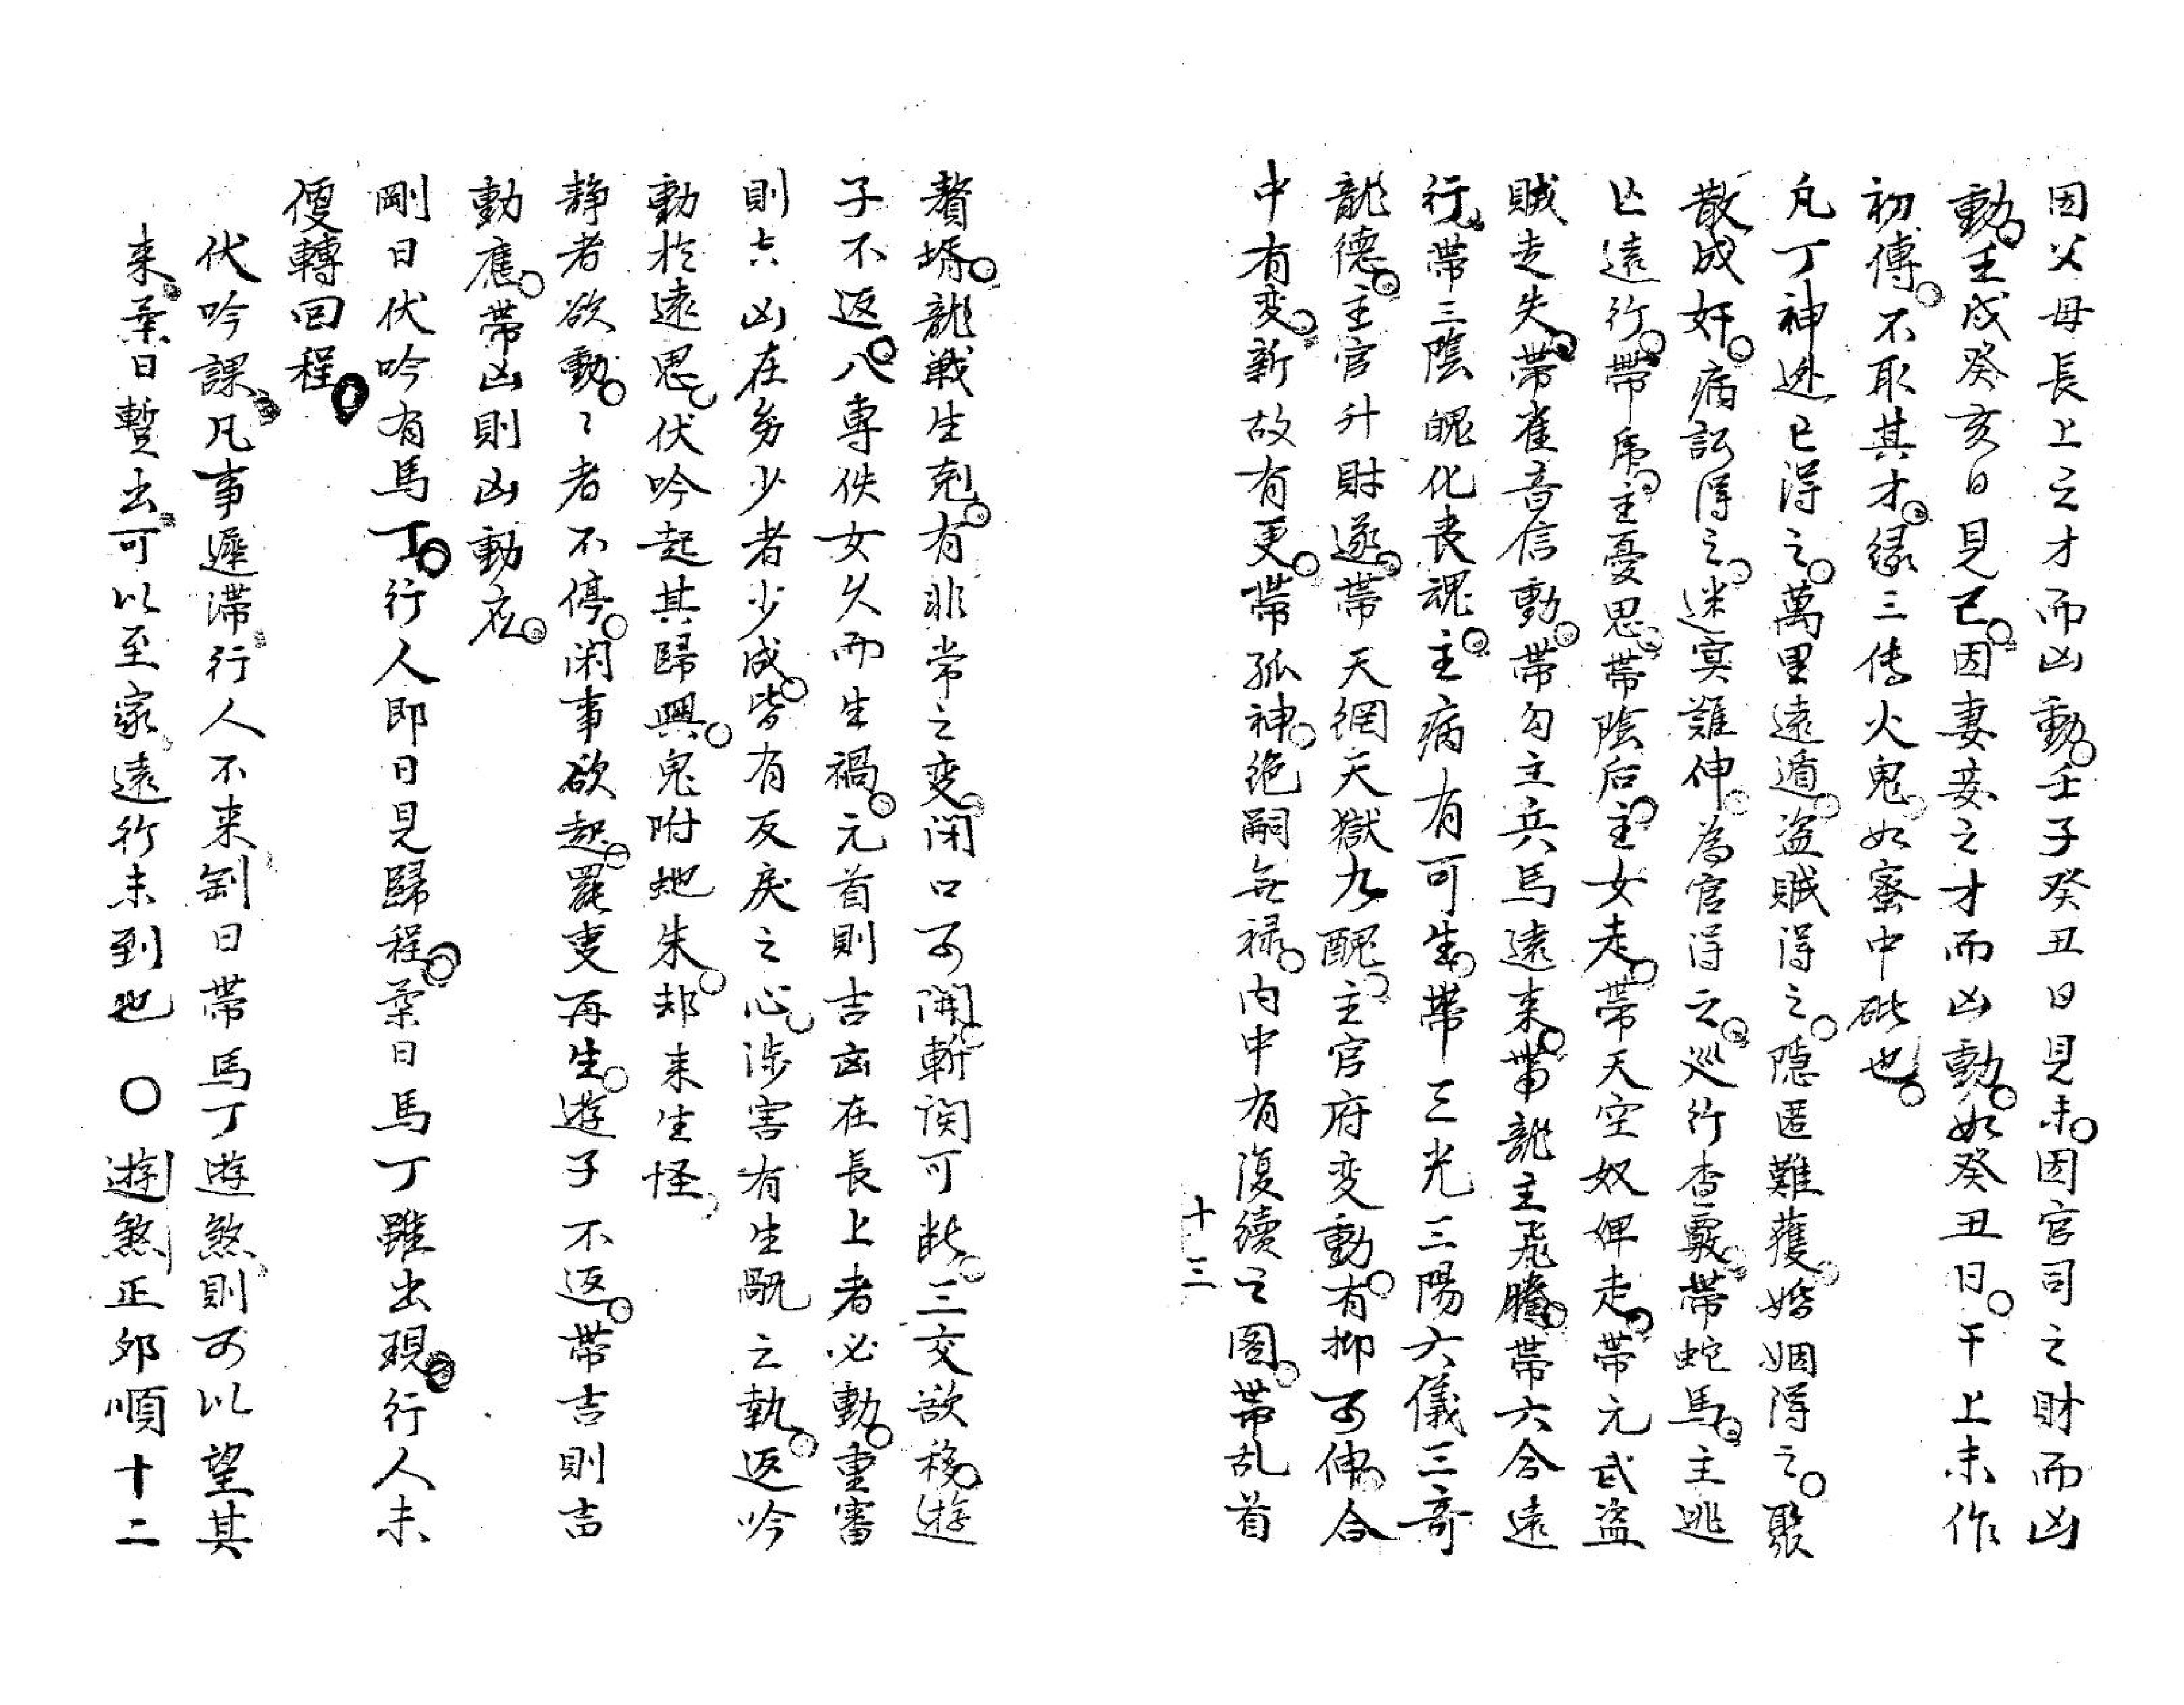 因父母長上之才而凶動壬子癸丑日見未因官司之財而凶
動壬戌癸亥日見己因妻妾之才而凶動如癸丑日干上未作
初傳不取其才緣三传火鬼如寮中砒也
凡丁神逃亡得之萬里遠遁盗賊得之隱匿難獲婚姻得之聚
散成奸病訟得之迷冥難伸為官得之巡行查覈帶蛇馬主逃
亡遠行帶虎主憂思帶陰后主女走帶天空奴婢走帶元武盜
賊走失帶雀音信動帶勾主兵馬遠来帶龍主飛騰帶六合遠
行帶三陰魄化丧魂主病有可生帶三光三陽六儀三奇
龍德主官升財遂帶天網天獄九醜主官府变動有抑可伸合
中有变新故有更帶孤神绝嗣無禄内中有復續之图帶乱首
十三
贅壻龍戦生剋有非常之变闭口可開斬関可断三交欲移遊
子不返八專佚女久而生禍元首則吉凶在長上者必動重審
則吉凶在幼少者少成皆有反戾之心涉害有生翫之執返吟
動於遠思伏吟起其歸興鬼附蛇朱邦来生怪
静者欲動〻者不停闲事欲起罷事再生遊子不返帶吉則吉
動應帶凶則凶動应
剛日伏吟有馬丁行人即日見歸程柔日馬丁雖出現行人未
便轉回程
伏吟課凡事遲滞行人不来剛日帶馬丁遊煞則可以望其
来柔日暫出可以至家遠行未到也 〇遊煞正卯順十二